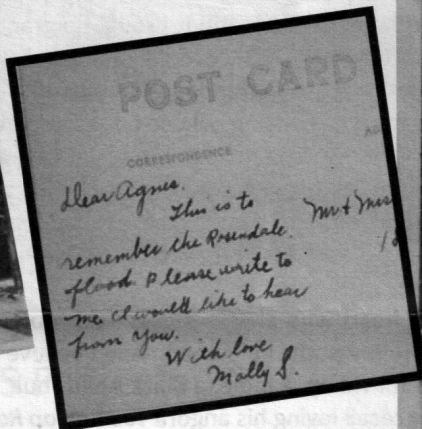 POST CARD
CORRESPONDENCE
AD
Dear Agnes.
This is to
remember the Rosendale
flood. Please write to
me. I would like to hear
from you.
With love
Molly S.
Mr & Mrs